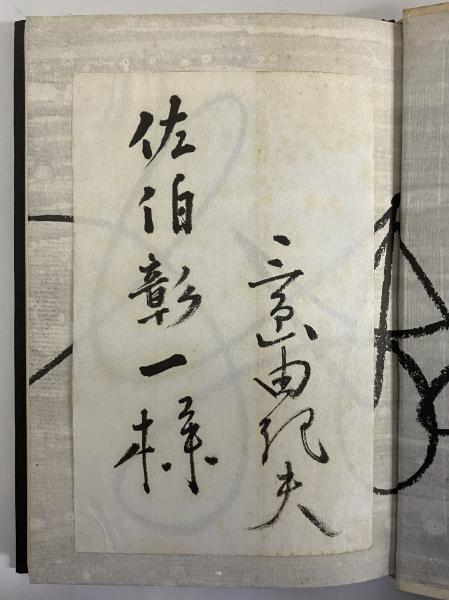 三島由紀夫
佐伯彰一様